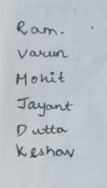 Ram.
Varun
Mohit
Jayant
Dutta
Keshav